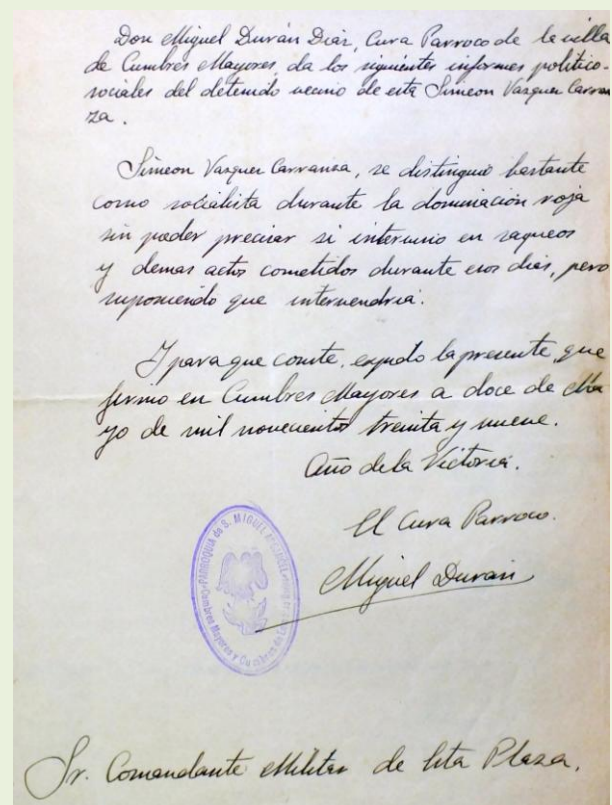 Don Miguel Durán Diaz, Cura Parroco de la villa
de Cumbres Mayores, da los siguientes informes político-
sociales del detenido vecino de esta Simeon Vazquez Carran
za.
Simeon Vazquez Carranza, se distinguió bastante
como socialista durante la dominación roja
sin poder precisar si intervino en saqueos
y demas actos cometidos durante esos dias, pero
suponiendo que intervendria.
Y para que conste, expido la presente, que
firmo en Cumbres Mayores a doce de Ma
yo de mil novecientos treinta y nueve.
Año de la Victoria.
El Cura Parroco.
Miguel Durán
PARROQUIA de S. MIGUEL ARCANGEL
Cumbres Mayores y Cumbres de
Sr. Comandante Militar de esta Plaza.